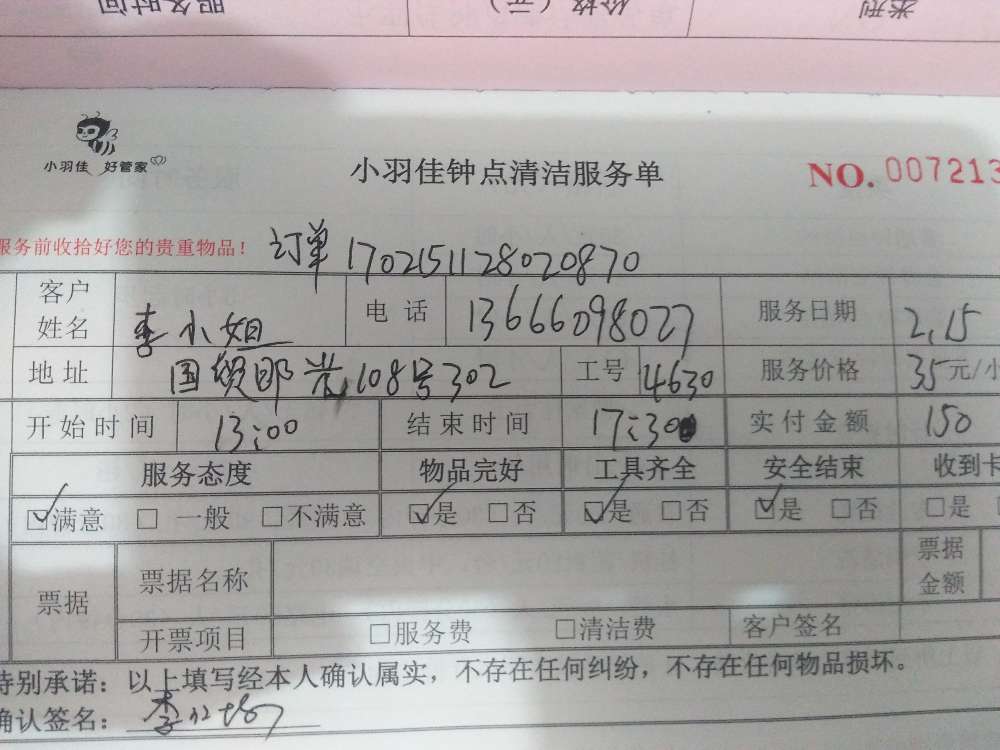 服务时间 价格（元） 类型
小羽佳 好管家
小羽佳钟点清洁服务单 NO. 007213
服务前收拾好您的贵重物品！ 订单 1702151128020870
客户姓名 李小姐 电话 13666098027 服务日期 2.15
地址 国贸 108号302 工号 4630 服务价格 35元/小
开始时间 13:00 结束时间 17:30 实付金额 150
服务态度 物品完好 工具齐全 安全结束 收到卡
☑满意 □一般 □不满意 ☑是 □否 ☑是 □否 ☑是 □否 □是
票据 票据名称 票据金额
开票项目 □服务费 □清洁费 客户签名
特别承诺：以上填写经本人确认属实，不存在任何纠纷，不存在任何物品损坏。
确认签名：